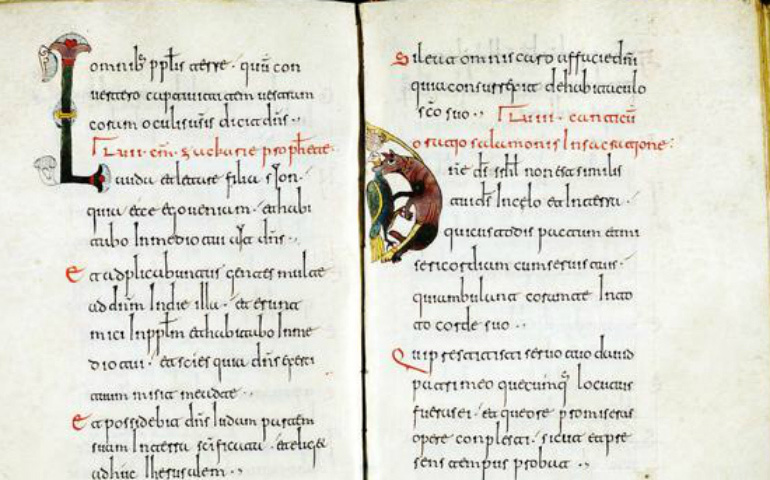 omnibꝰ pplis terre · qum̄ con
uertero captiuitatem uestram
coram oculis ur̄is dicit dn̄s ·,
zacharie prophete:
Lauda et letare filia sion ·
quia ecce ego ueniam · et habi
tabo In medio tui ait dn̄s ·,
Et adplicabuntur gentes multe
ad dn̄m In die illa · et erunt
mici In pplm̄ et habitabo In me
dio tui · et scies quia dn̄s exerci
tuum misit me ad te ·,
Et possidebit dn̄s Iudam partem
suam In terra sc̄ificata · et eliget
adhuc Iherusalem ·,
Sileat omnis caro a facie dn̄i
quia consurrexit de habitaculo
sc̄o suo ·, canticū
oratio salomonis In sacratione:
Dn̄e ds̄ srhl̄ non est similis
tui ds̄ In celo et In terra ·
qui custodis pactum et mi
sericordiam cum seruis tuis ·
qui ambulant coram te In to
to corde suo ·,
Qui prestitisti seruo tuo dauid
patri meo quecumq; locutus
fueras ei · et que ore promiseras
opere complesti · sicut et pre
sens tempus probat ·,